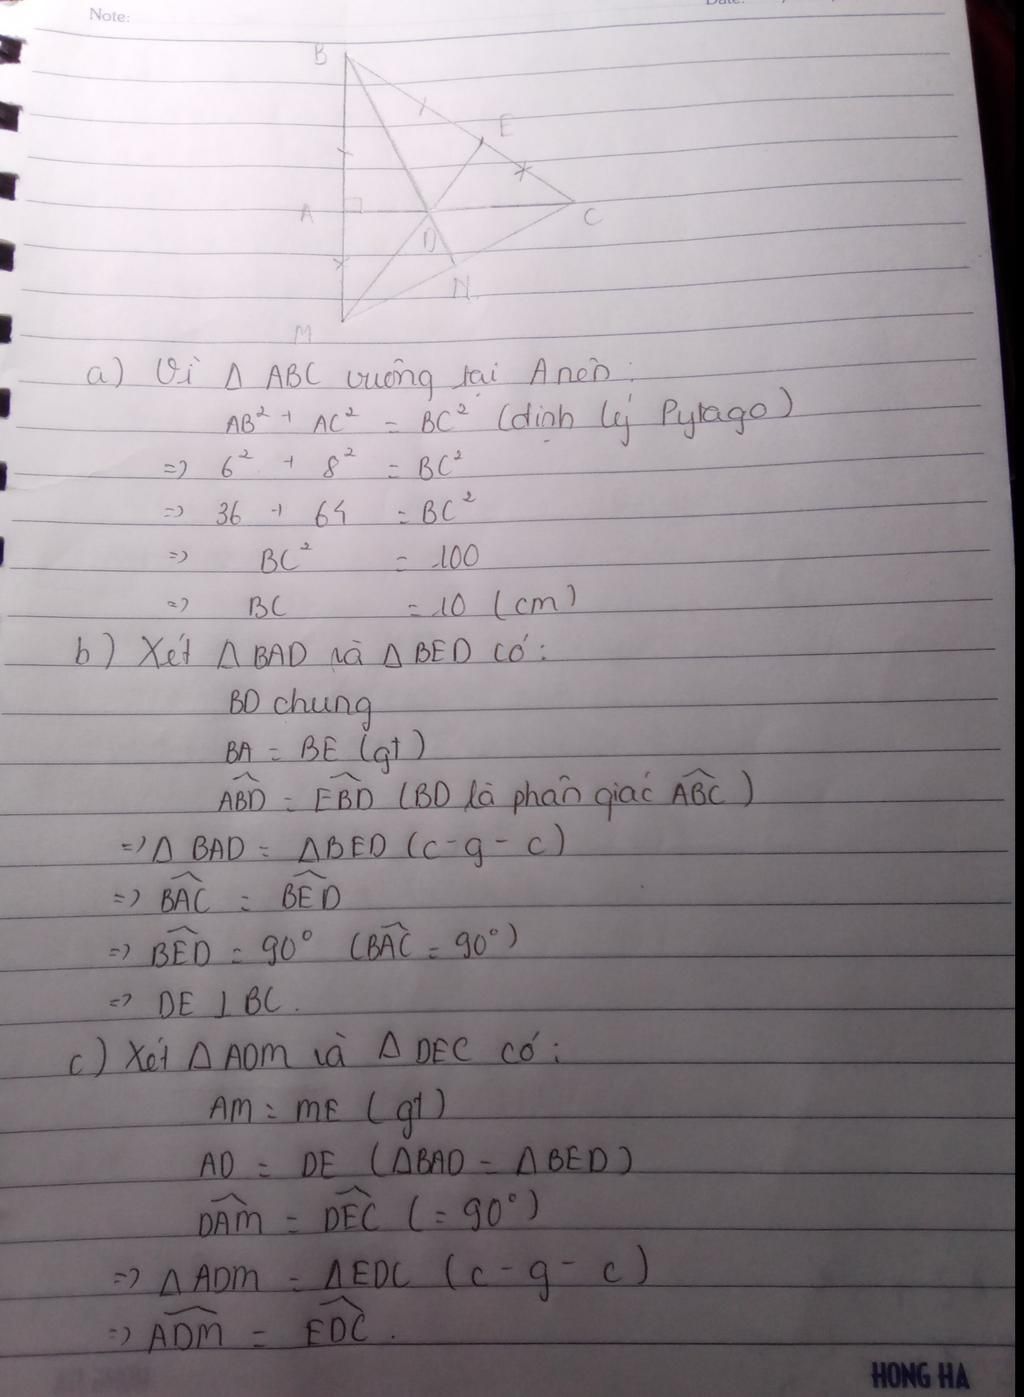 Note:
Date:
B
E
A
C
D
N
M
a) Vì Δ ABC vuông tại A nên:
AB² + AC² = BC² (định lý Pytago)
=> 6² + 8² = BC²
=> 36 + 64 = BC²
=> BC² = 100
=> BC = 10 (cm)
b) Xét Δ BAD và Δ BED có:
BD chung
BA = BE (gt)
\widehat{ABD} = \widehat{EBD} (BD là phân giác \widehat{ABC})
=> Δ BAD = Δ BED (c-g-c)
=> \widehat{BAC} = \widehat{BED}
=> \widehat{BED} = 90° (\widehat{BAC} = 90°)
=> DE ⊥ BC.
c) Xét Δ ADM và Δ DEC có:
AM = ME (gt)
AD = DE (ΔBAD = ΔBED)
\widehat{DAM} = \widehat{DEC} (= 90°)
=> Δ ADM = Δ EDC (c-g-c)
=> \widehat{ADM} = \widehat{EDC}.
HONG HA